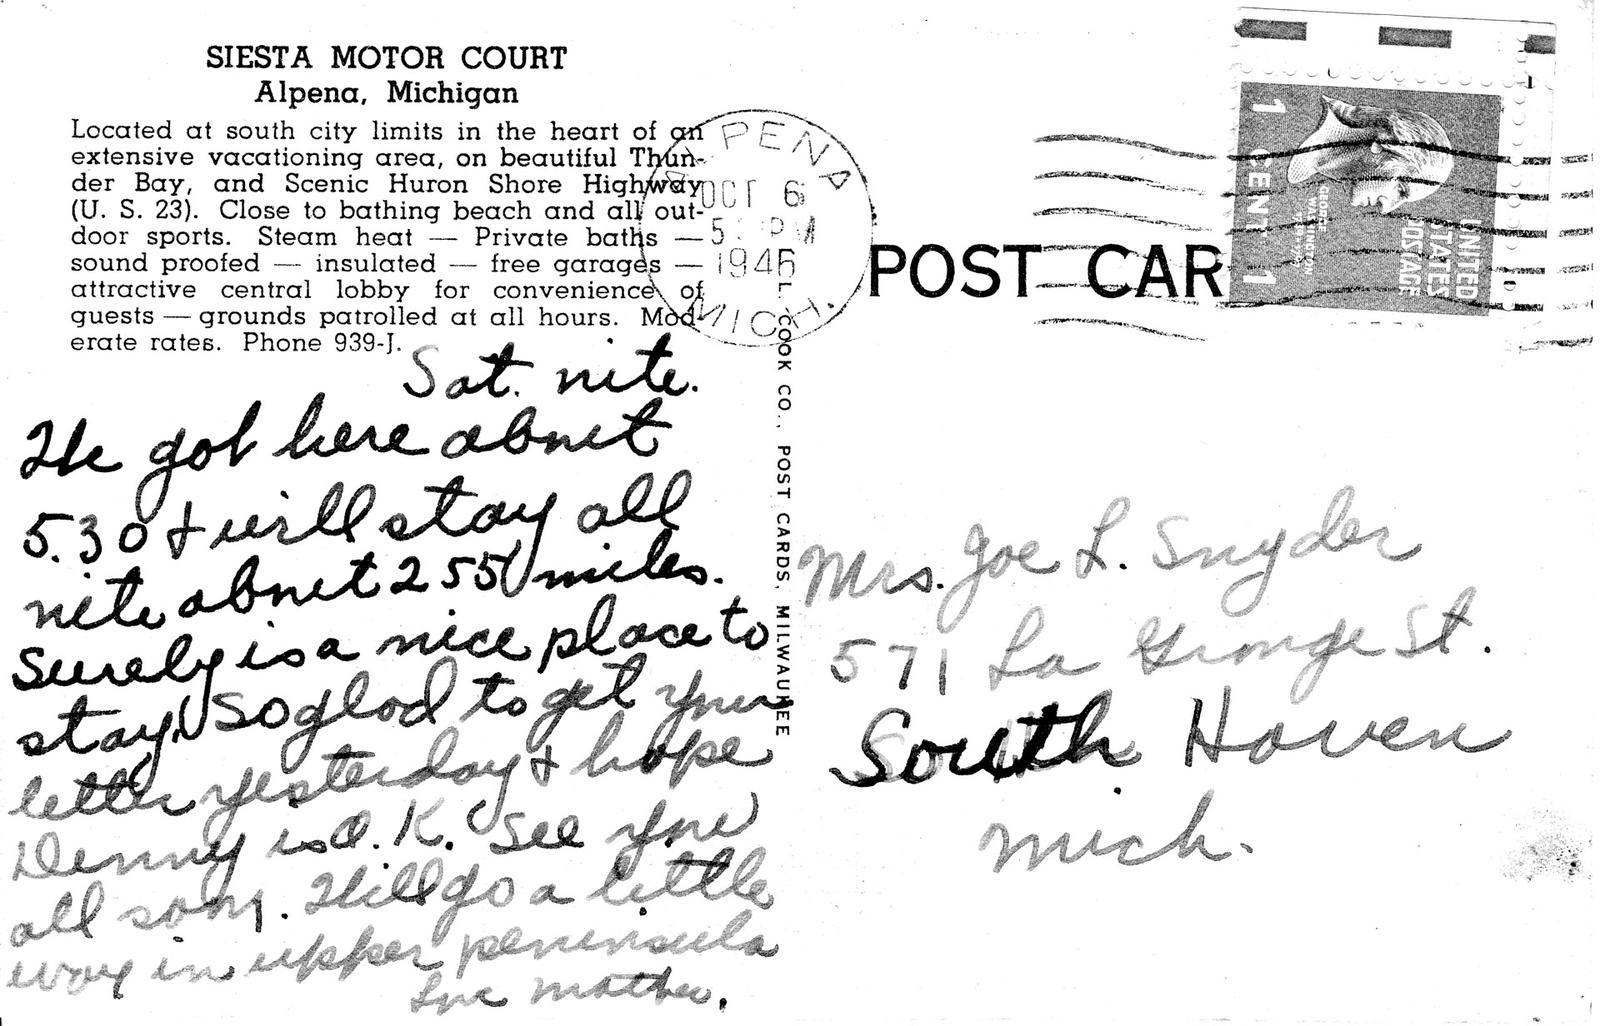 SIESTA MOTOR COURT
Alpena, Michigan
Located at south city limits in the heart of an
extensive vacationing area, on beautiful Thun-
der Bay, and Scenic Huron Shore Highway
(U. S. 23). Close to bathing beach and all out-
door sports. Steam heat — Private baths —
sound proofed — insulated — free garages —
attractive central lobby for convenience of
guests — grounds patrolled at all hours. Mod-
erate rates. Phone 939-J.
Sat. nite.
We got here about
5.30 & will stay all
nite about 255 miles.
Surely is a nice place to
stay. So glad to get your
letter yesterday & hope
Denny is O.K. See you
all soon. Will go a little
way in upper peninsula
Love Mother.
L. L. COOK CO., POST CARDS, MILWAUKEE
ALPENA
OCT 6
5 PM
1946
MICH.
POST CAR
1 CENT 1
GEORGE WASHINGTON
UNITED
STATES
POSTAGE
Mrs. Joe L. Snyder
571 La Grange St.
South Haven
Mich.